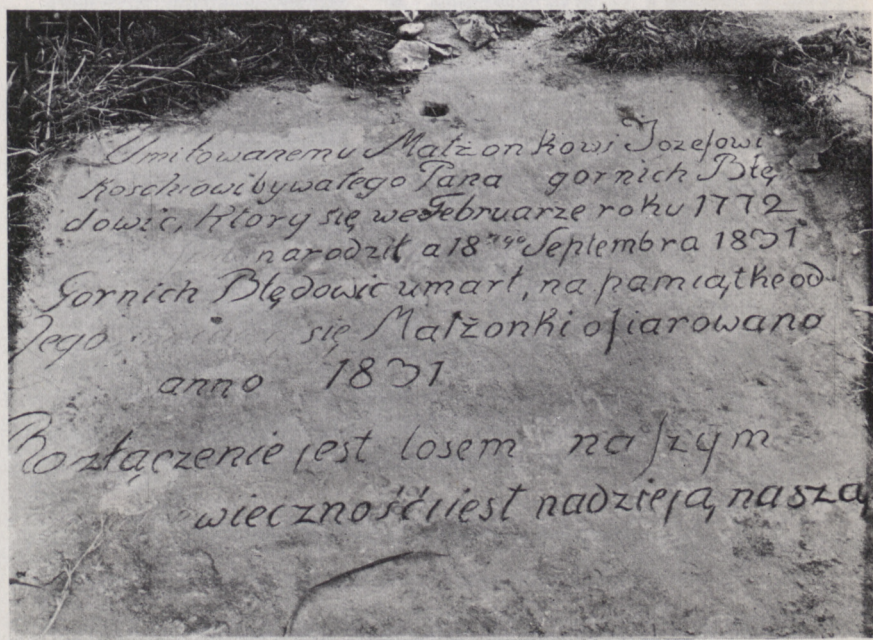 Umiłowanemu Małżonkowi Jozefowi
Koschiowi bywałego Pana gornich Błę
dowic, Ktory się we Februarze roku 1772
narodził a 18 Septembra 1831
Gornich Błędowic umarł, na pamiątke od
Jego się Małżonki ofiarowano
anno 1831
Rozłączenie jest losem naszym
wieczność jest nadzieją naszą